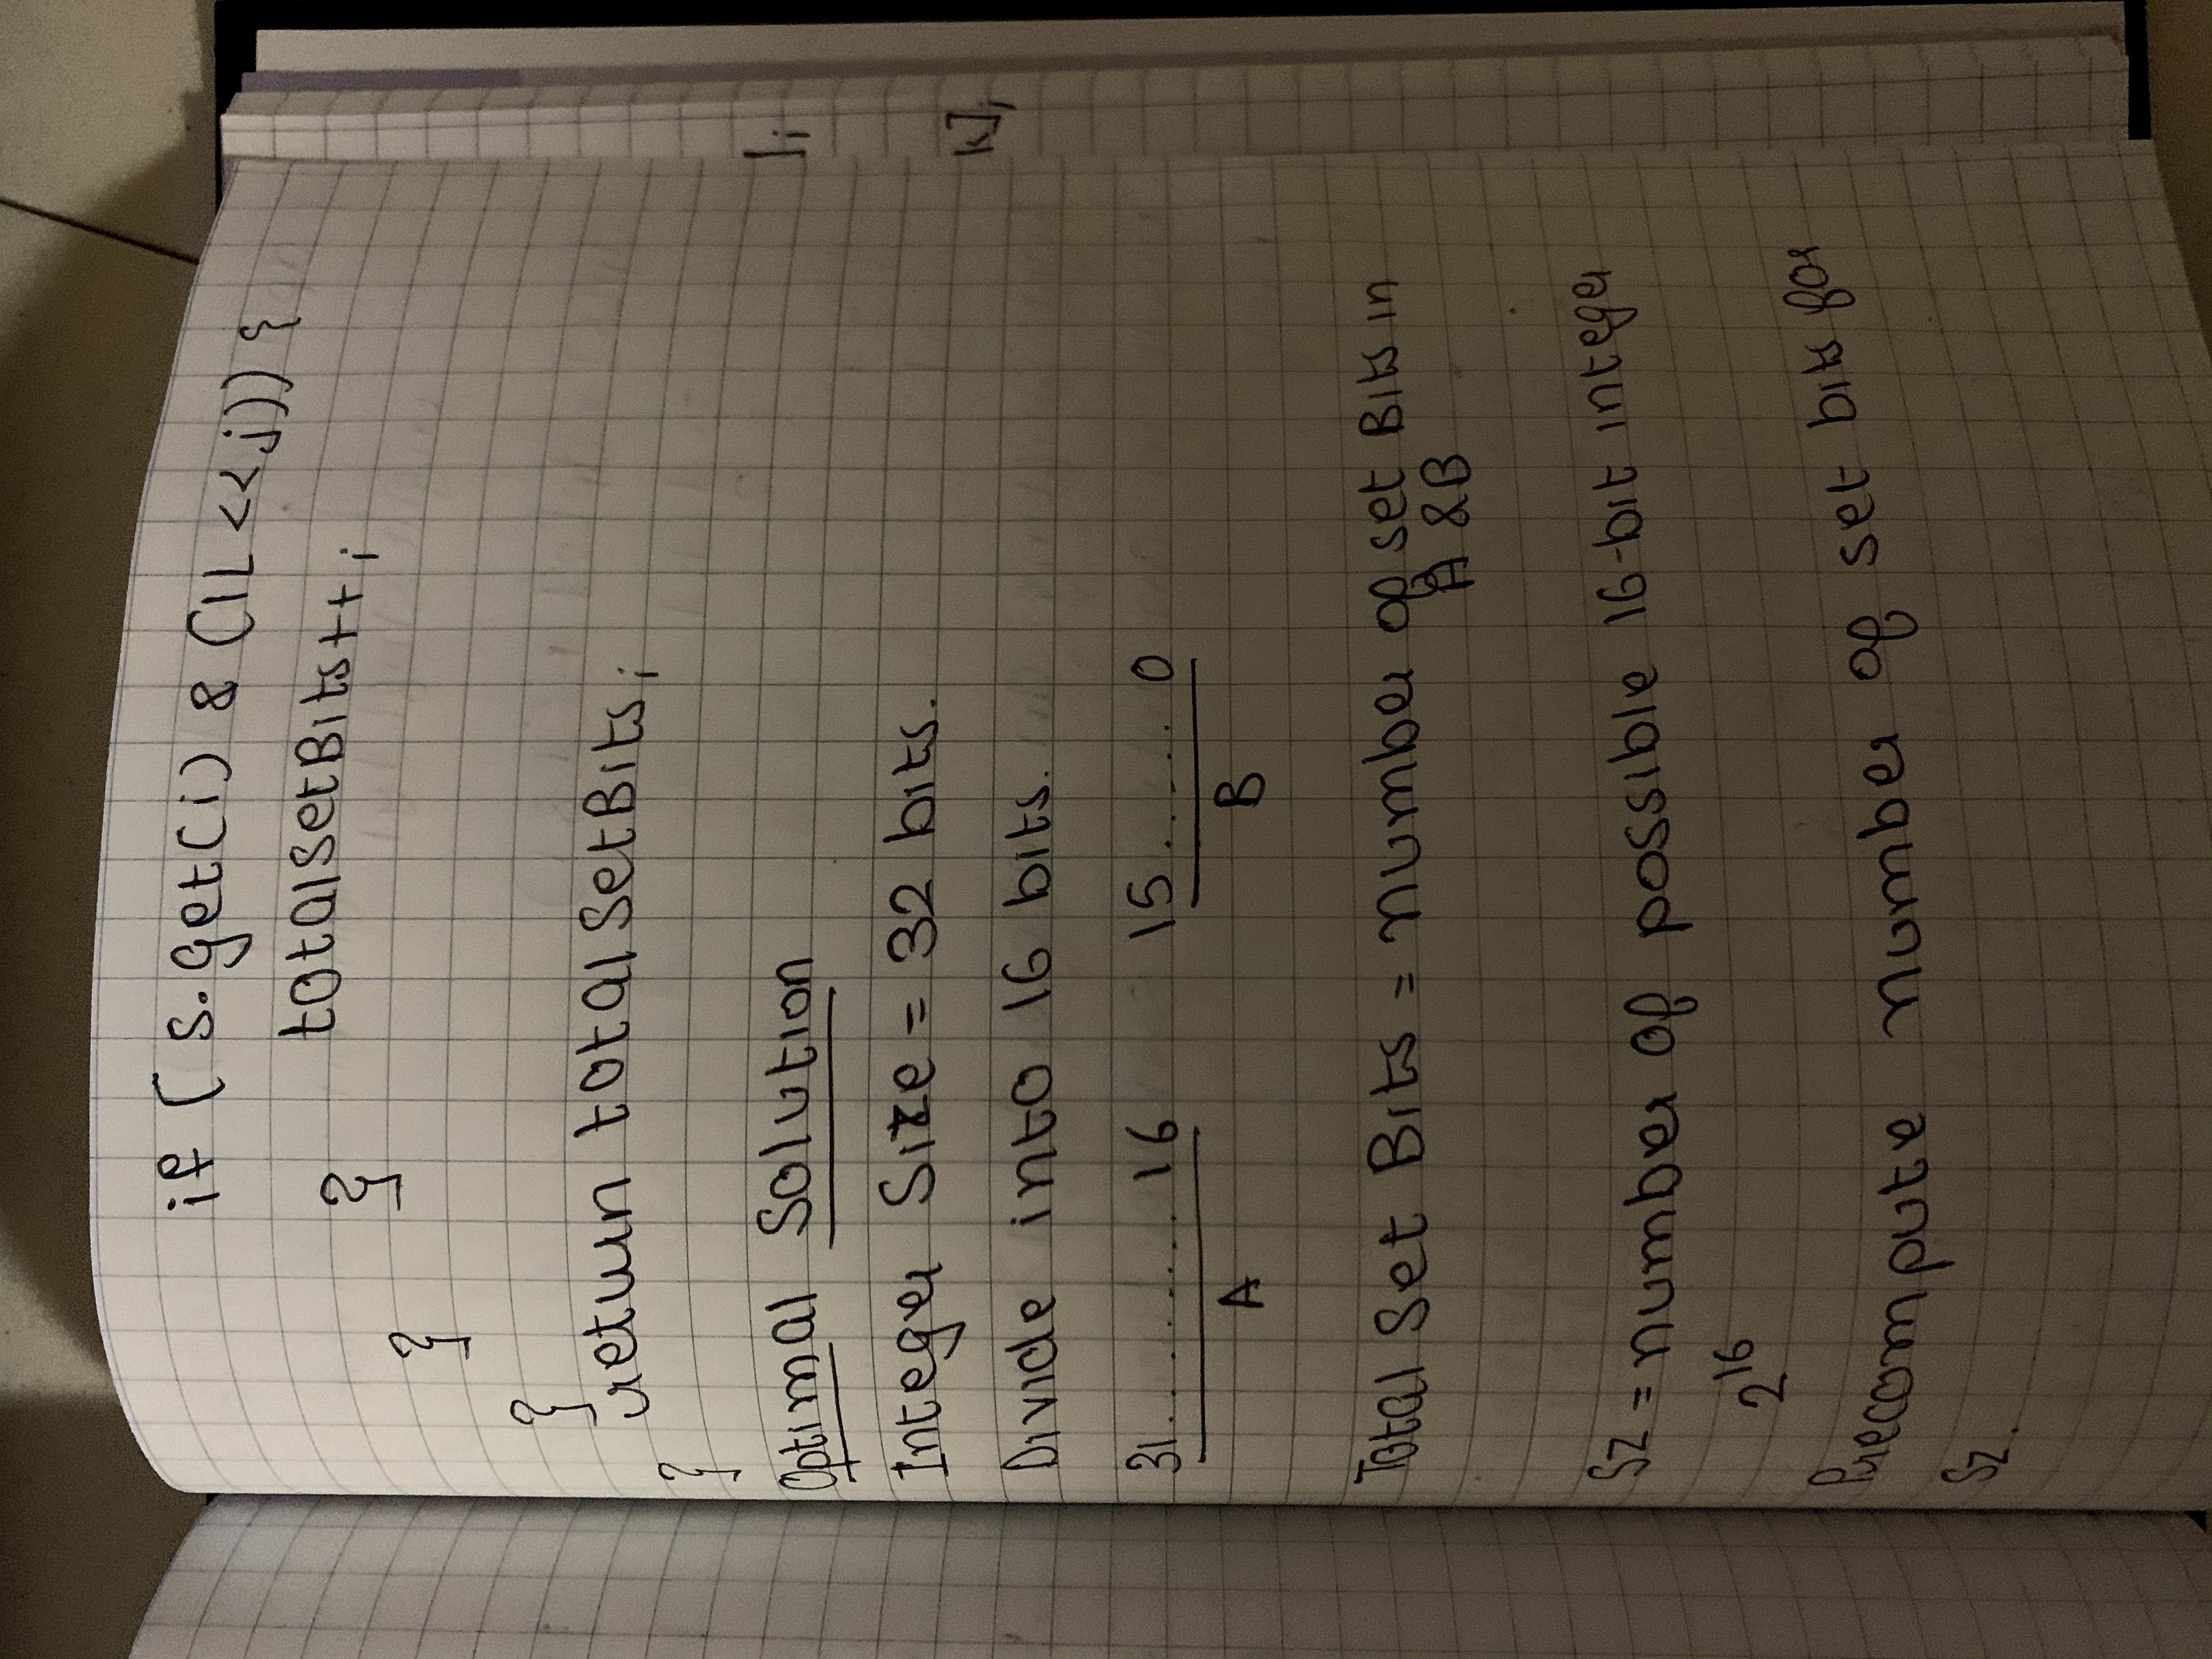 if ( s.get(i) & (1L <<j)) {
totalsetBits++;
}
}
}
return totalSetBits;
}
Optimal Solution
Integer Size = 32 bits.
Divide into 16 bits.
31......... 16 15..... 0
A B
Total Set Bits = number of set Bits in
A & B
Sz = number of possible 16-bit integer
2^16
Precompute number of set bits for
Sz.
];
k];